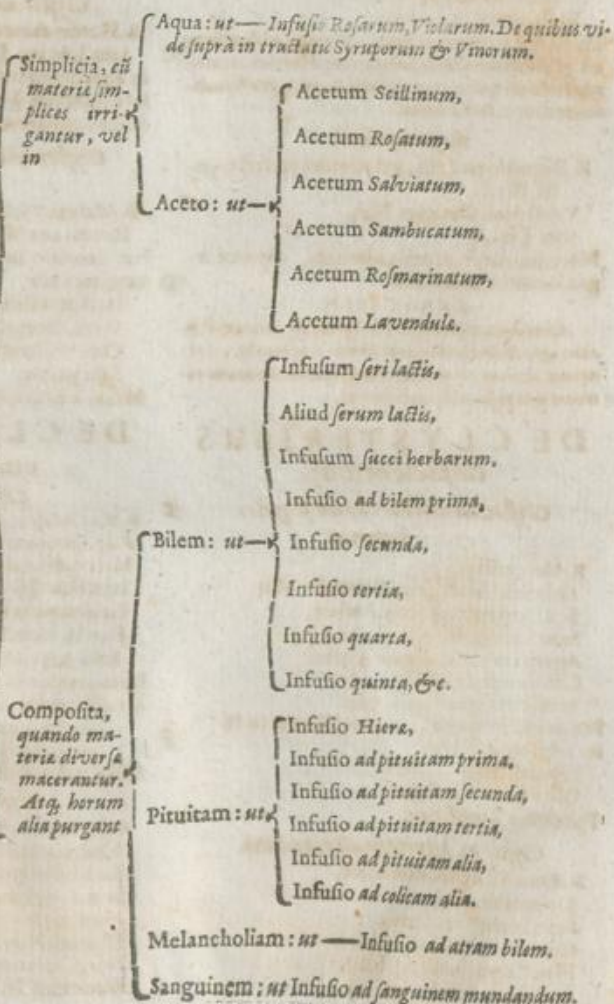 Aqua: ut — Infusio Rosarum, Violarum. De quibus vi-
de suprà in tractatu Syruporum & Vinorum.
Simplicia, cū
materiæ sim-
plices irri-
gantur, vel
in
Aceto: ut —
Acetum Scillinum,
Acetum Rosatum,
Acetum Salviatum,
Acetum Sambucatum,
Acetum Rosmarinatum,
Acetum Lavendulæ.
Composita,
quando ma-
teriæ diversæ
macerantur.
Atq; horum
alia purgant
Bilem: ut —
Infusum seri lactis,
Aliud serum lactis,
Infusum succi herbarum.
Infusio ad bilem prima,
Infusio secunda,
Infusio tertia,
Infusio quarta,
Infusio quinta, &c.
Pituitam: ut
Infusio Hieræ,
Infusio ad pituitam prima,
Infusio ad pituitam secunda,
Infusio ad pituitam tertia,
Infusio ad pituitam alia,
Infusio ad colicam alia.
Melancholiam: ut — Infusio ad atram bilem.
Sanguinem: ut Infusio ad sanguinem mundandum.